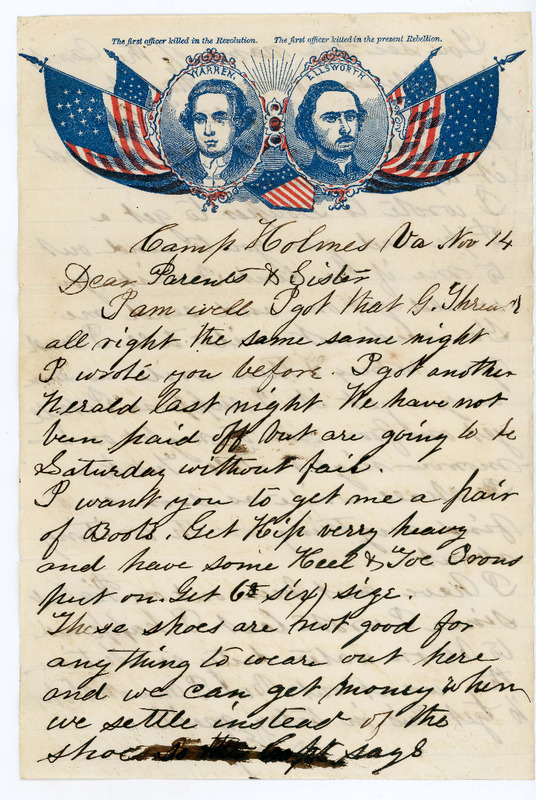 The first officer killed in the Revolution. The first officer killed in the present Rebellion.
WARREN. ELLSWORTH.
Camp Holmes Va Nov 14
Dear Parents & Sister
I am well I got that G.
all right the same same night
I wrote you before. I got another
Herald last night We have not
been paid off but are going to be
Saturday without fail.
I want you to get me a pair
of Boots. Get Kip verry heavy
and have some Heel & Toe Irons
put on. Get 6 six) size.
These shoes are not good for
anything to weare out here
and we can get money when
we settle instead of the
shoes says